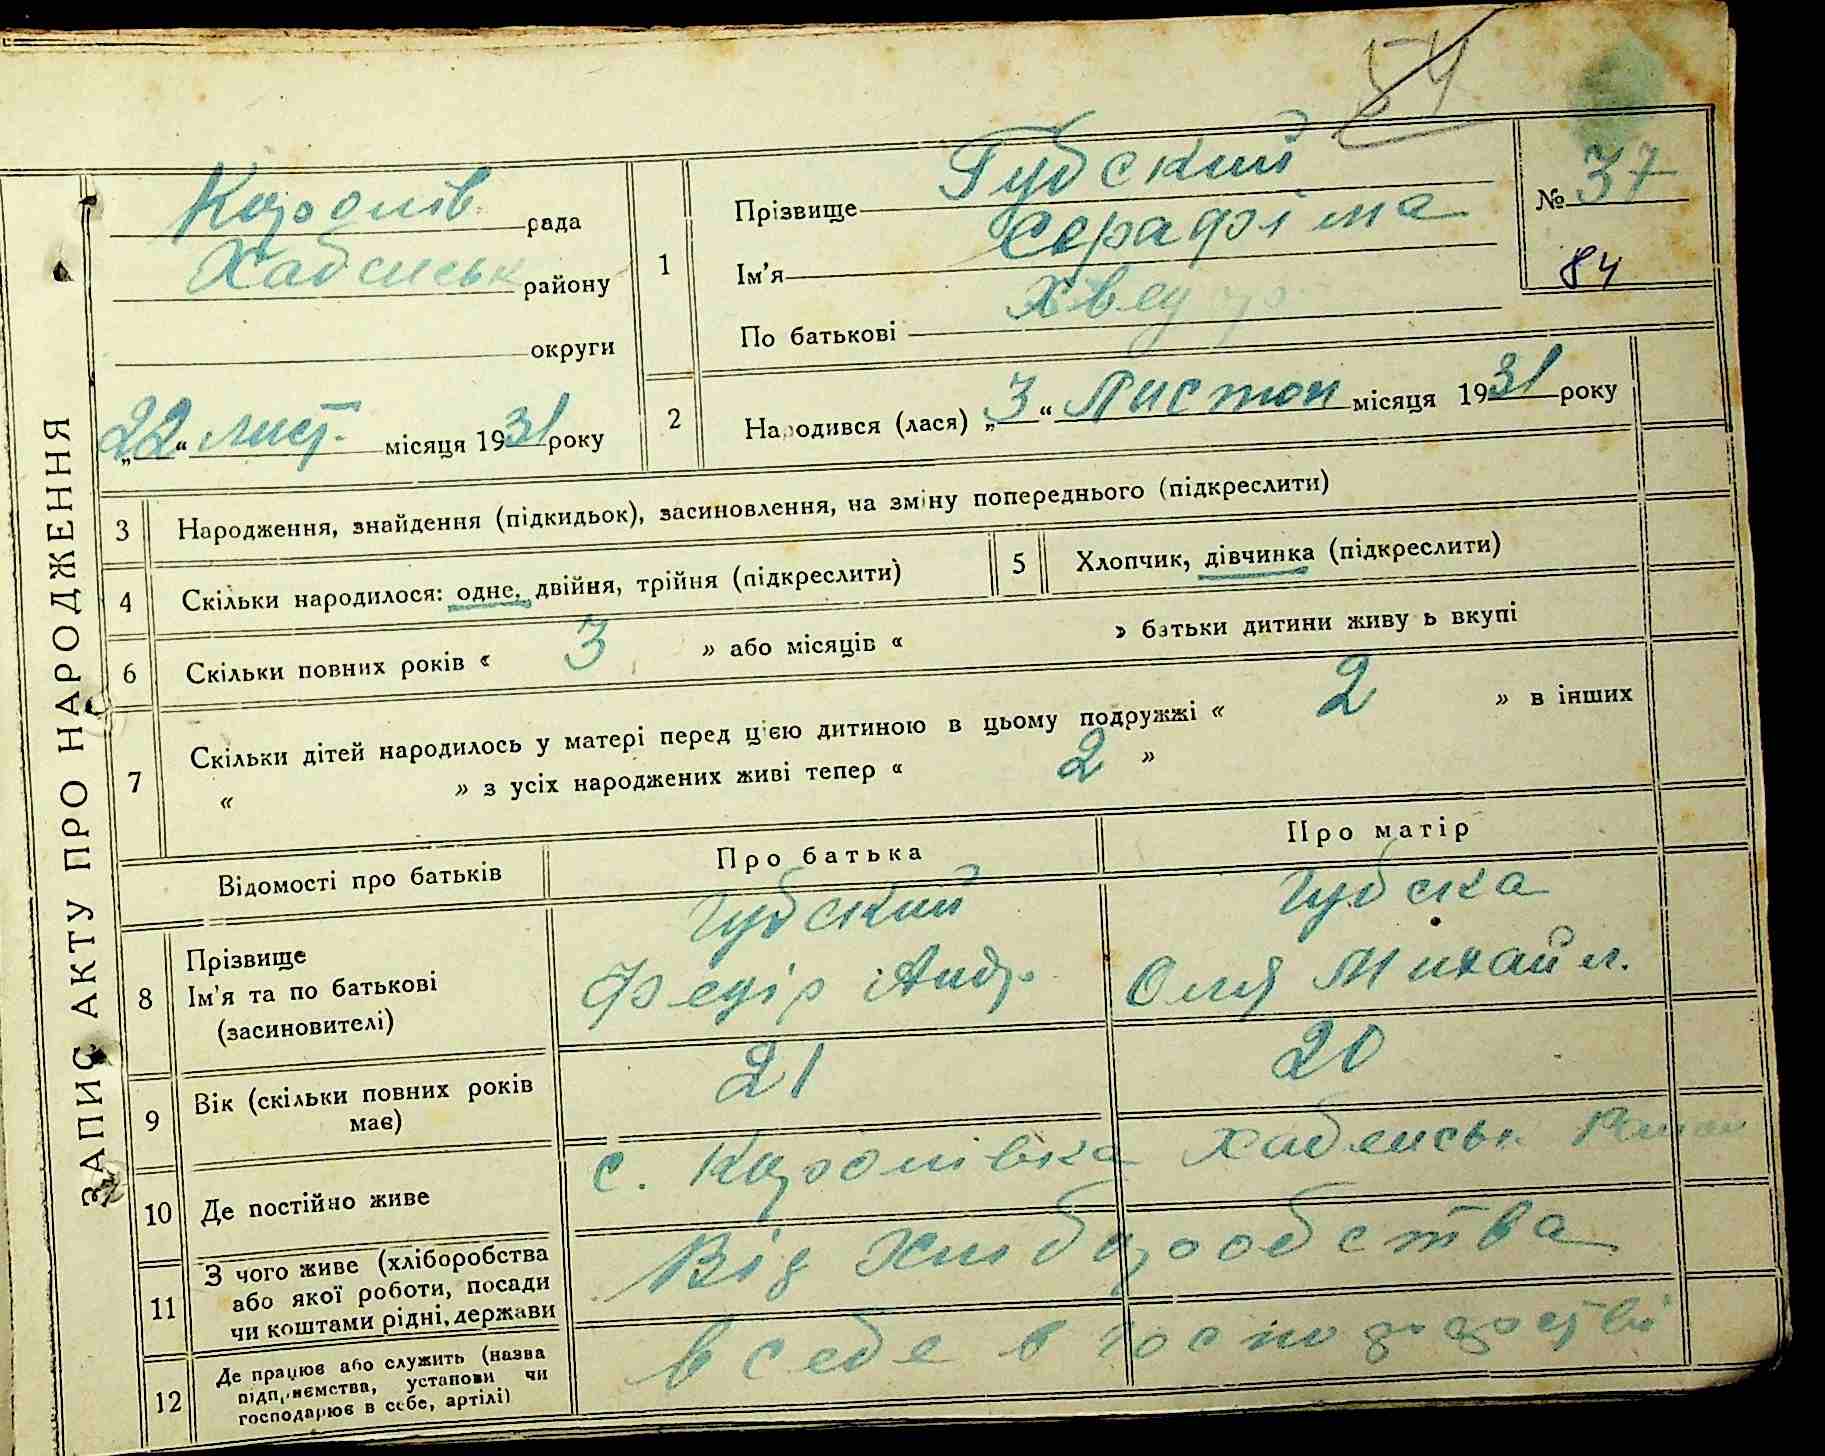 54
ЗАПИС АКТУ ПРО НАРОДЖЕННЯ
Королів рада
Хабенськ району
округи
„22“ лист. місяця 1931 року
1
Прізвище Губский
Ім'я Серафіма
По батькові Хведор
№ 37
84
2
Народився (лася) „3“ Листоп місяця 1931 року
3 Народження, знайдення (підкидьок), засиновлення, на зміну попереднього (підкреслити)
4 Скільки народилося: одне, двійня, трійня (підкреслити)
5 Хлопчик, дівчинка (підкреслити)
6 Скільки повних років « 3 » або місяців « » батьки дитини живуть вкупі
7 Скільки дітей народилось у матері перед цією дитиною в цьому подружжі « 2 » в інших
« » з усіх народжених живі тепер « 2 »
Відомості про батьків Про батька Про матір
8 Прізвище
Ім'я та по батькові
(засиновителі)
Губский
Федір Андр.
Губска
Оля Михайл.
9 Вік (скільки повних років має) 21 20
10 Де постійно живе с. Королівка Хабенськ Район
11 З чого живе (хліборобства
або якої роботи, посади
чи коштами рідні, держави
Від Хліборобства
12 Де працює або служить (назва
підприємства, установи чи
господарює в себе, артілі)
в себе в господарстві